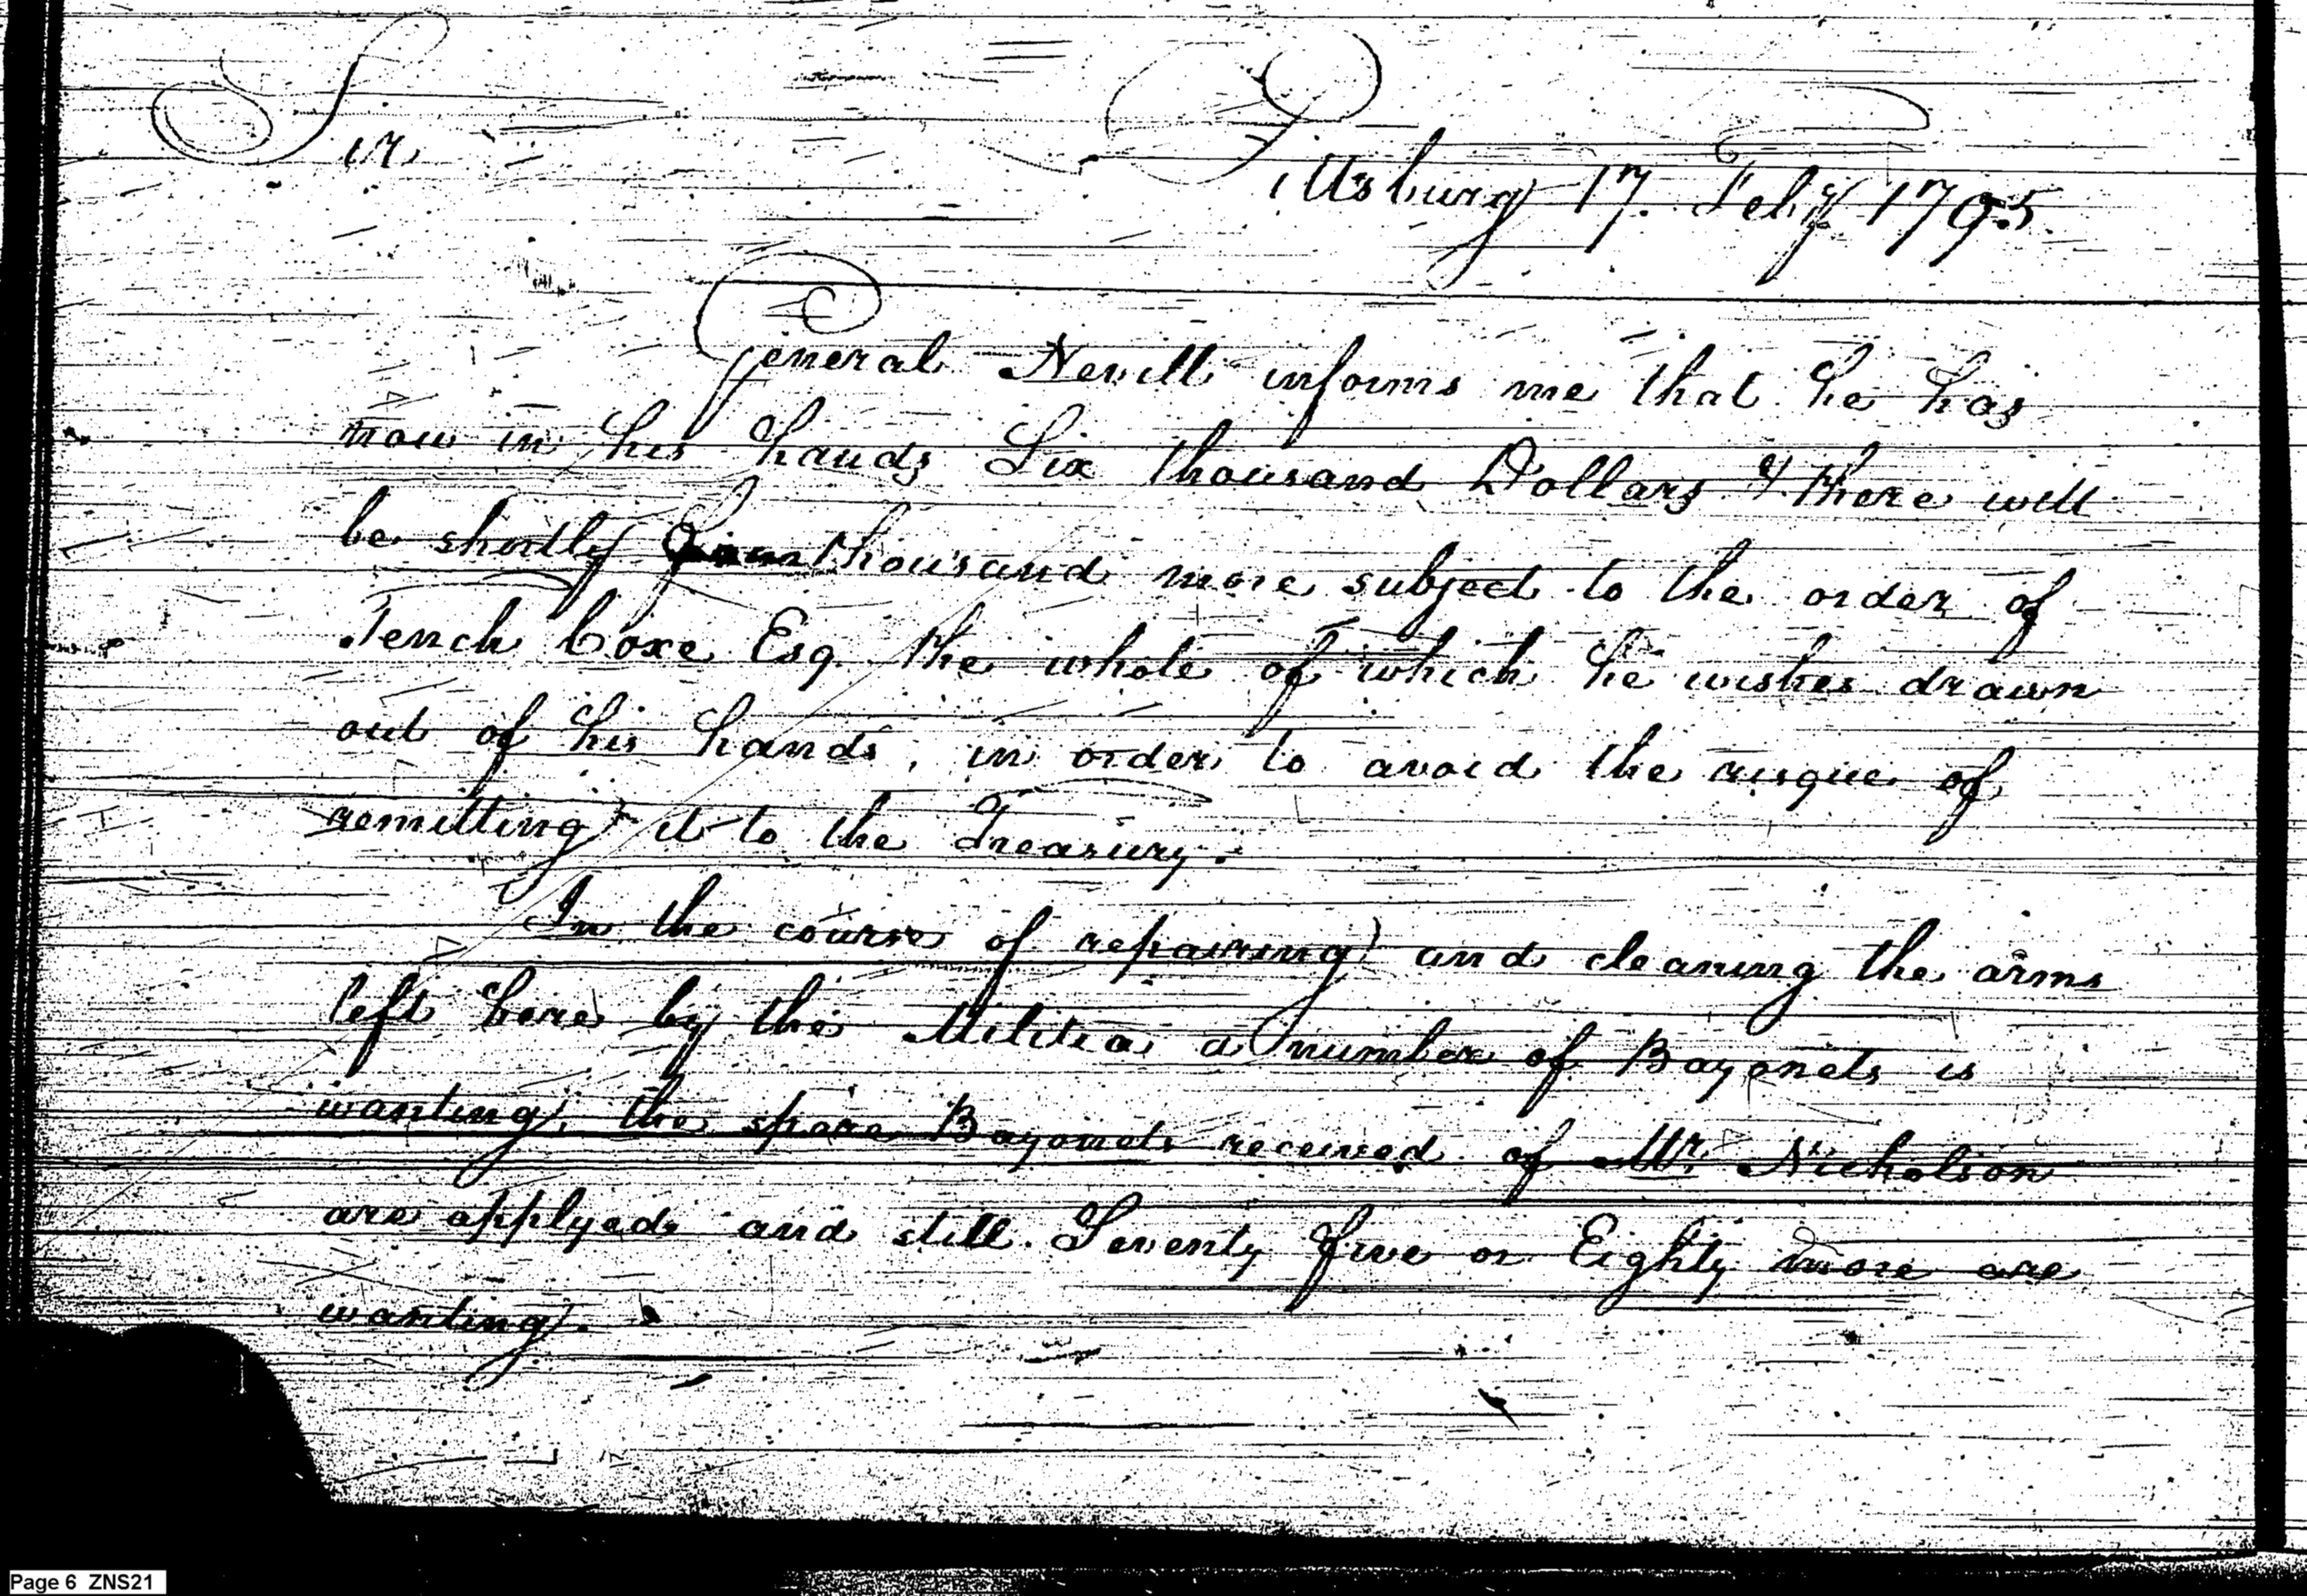 Sir
Pittsburg 17. Feby 1795
General Nevill informs me that he has
now in his hands Six thousand Dollars & there will
be shortly thousand more subject to the order of
Tench Coxe Esq. the whole of which he wishes drawn
out of his hands, in order to avoid the risque of
remitting it to the Treasury.
In the course of repairing and cleaning the arms
left here by the Militia a number of Bayonets is
wanting, the spare Bayonets received of Mr. Nicholson
are applyed and still Seventy five or Eighty more are
wanting.
Page 6 ZNS21